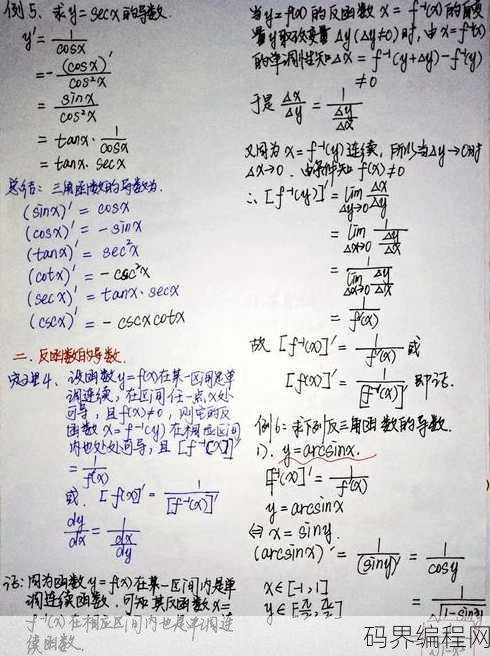 例5、求y=secx的导数
y'= 1/cosx
= -(cosx)'/cos²x
= sinx/cos²x
= tanx·1/cosx
= tanx·secx
总结：三角函数的导数为.
(sinx)' = cosx
(cosx)' = -sinx
(tanx)' = sec²x
(cotx)' = -csc²x
(secx)' = tanx·secx
(cscx)' = -cscxcotx
二、反函数的导数.
定理4、设函数y=f(x)在某一区间是单
调连续，在区间任一点x处
可导，且f'(x)≠0，则它的反
函数x=f⁻¹(y)在相应区间
内也处处可导，且[f⁻¹(x)]'
= 1/f'(x)
或 [f(x)]' = 1/[f⁻¹(x)]'
dy/dx = 1/(dx/dy)
证：因为函数y=f(x)在某一区间内是单
调连续函数，可知其反函数x=
f⁻¹(x)在相应区间内也是单调连
续函数.
当y=f(x)的反函数x=f⁻¹(x)的自变
量y取改变量Δy(Δy≠0)时，由x=f⁻¹(x)
的单调性知Δx=f⁻¹(y+Δy)-f⁻¹(y)
≠0
于是 Δx/Δy = 1/(Δy/Δx)
又因为x=f⁻¹(y)连续，所以当Δy→0时
Δx→0. 由条件知f'(x)≠0
∴[f⁻¹(y)]' = lim Δy→0 Δx/Δy
= lim Δx→0 1/(Δy/Δx)
= 1/(lim Δx→0 Δy/Δx)
= 1/f'(x)
故 [f⁻¹(x)]' = 1/f'(x) 或
[f(x)]' = 1/[f⁻¹(x)]' 即证.
例6：求下列反三角函数的导数.
i). y=arcsinx.
[f⁻¹(x)]' = 1/f'(x)
y=arcsinx
⇔ x=siny.
(arcsinx)' = 1/(siny)' = 1/cosy
x∈[-1,1]
= 1/√(1-sin²y)
码界编程网